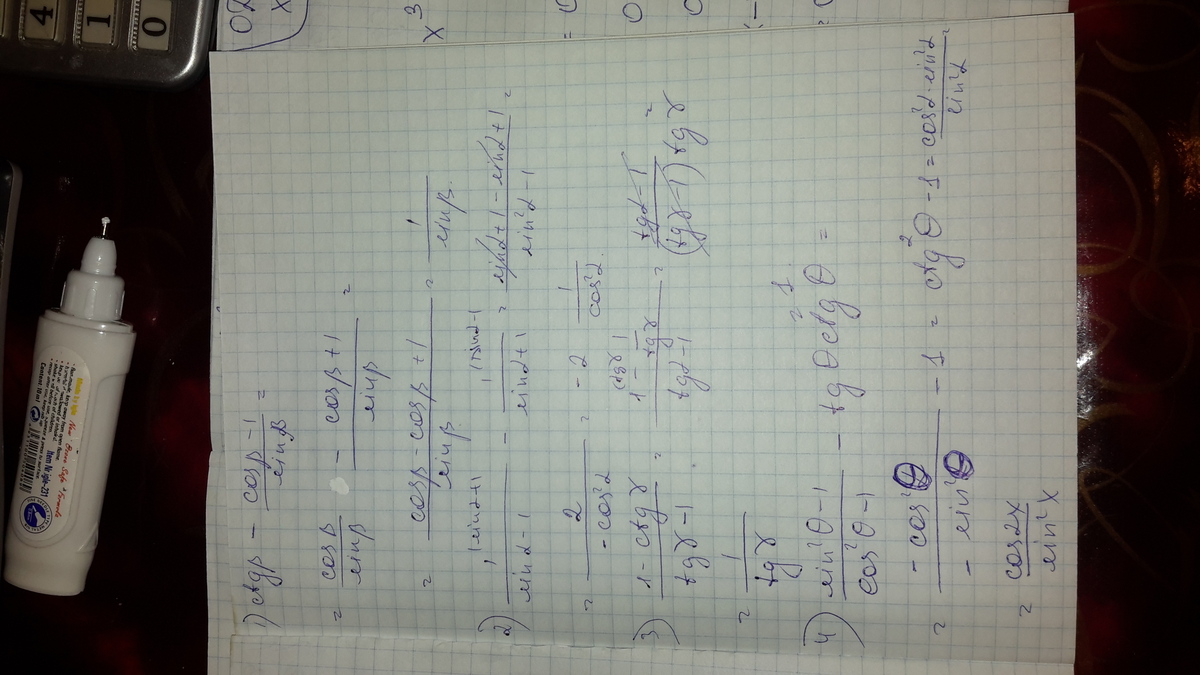 1) ctgβ - (cosβ-1)/sinβ =
= cosβ/sinβ - (cosβ+1)/sinβ =
= (cosβ-cosβ+1)/sinβ = 1/sinβ.
2) 1/(sinα-1) - 1/(sinα+1) = (sinα+1-sinα+1)/(sin²α-1) =
= 2/(-cos²α) = -2 1/cos²α.
3) (1-ctgγ)/(tgγ-1) = (1 - 1/tgγ)/(tgα-1) = (tgα-1)/((tgγ-1)tgγ) =
= 1/tgγ
4) (sin²θ-1)/(cos²θ-1) - tgθctgθ =
= (-cos²θ)/(-sin²θ) - 1 = ctg²θ-1 = (cos²α-sin²α)/sin²α =
= cos2x/sin²x
4
1
0
x³
Item Nr: igle-221
Content: 10 ml